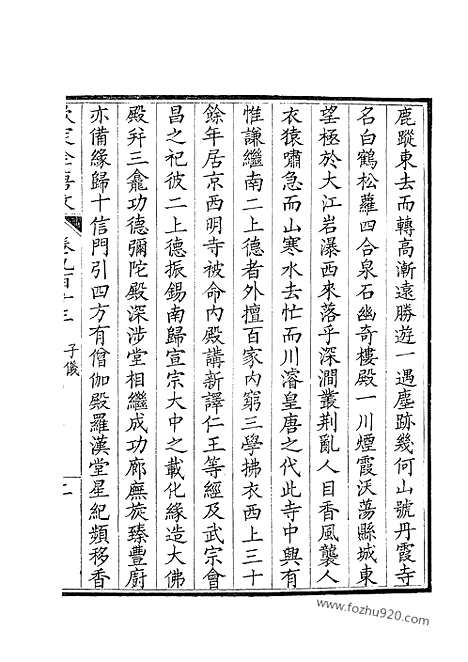 鹿蹤東去而轉高漸遠勝遊一遇塵跡幾何山號丹霞寺
名白鶴松蘿四合泉石幽奇樓殿一川煙霞沃蕩縣城東
望極於大江岩瀑西來落乎深澗叢荆亂人目香風襲人
衣猿嘯急而山寒水去忙而川濬皇唐之代此寺中興有
惟謙繼南二上德者外擅百家内窮三學拂衣西上三十
餘年居京西明寺被命内殿講新譯仁王等經及武宗會
昌之祀彼二上德振錫南歸宣宗大中之載化緣造大佛
殿并三龕功德彌陀殿深涉堂相繼成功廊廡旋臻豐廚
亦備緣歸十信門引四方有僧伽殿羅漢堂星紀頻移香
欽定全唐文
卷九百十三 子儀
二
www.fozhu920.com